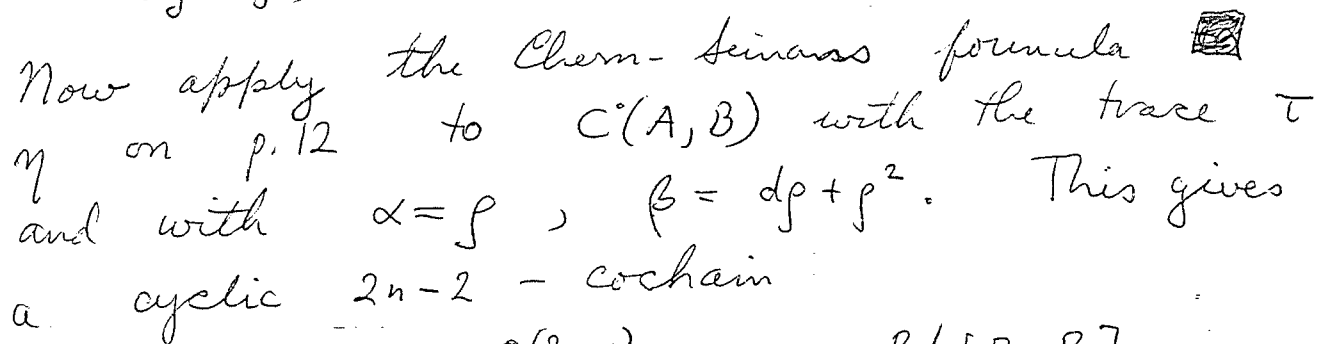 Now apply the Chern-Simons formula
η on p. 12 to C˙(A, B) with the trace τ
and with α = ρ, β = dρ + ρ². This gives
a cyclic 2n-2 - cochain